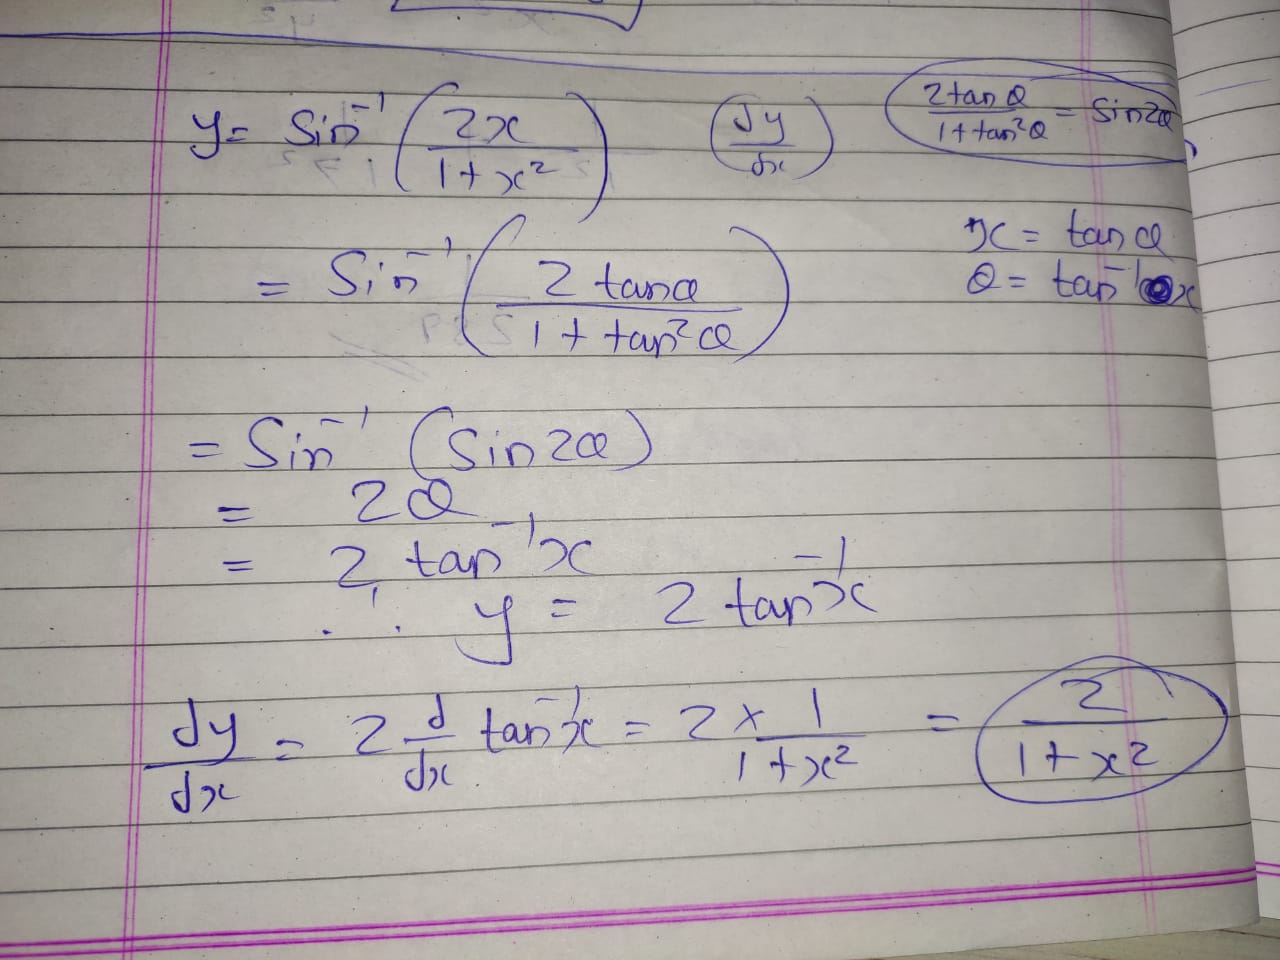 y = Sin⁻¹ (2x / 1+x²) (dy/dx) 2tanθ / 1+tan²θ = Sin2θ
x = tanθ
= Sin⁻¹ (2 tanθ / 1 + tan²θ) θ = tan⁻¹ x
= Sin⁻¹ (Sin2θ)
= 2θ
= 2 tan⁻¹x
∴ y = 2 tan⁻¹x
dy/dx = 2 d/dx tan⁻¹x = 2 × 1 / 1+x² = 2 / 1+x²